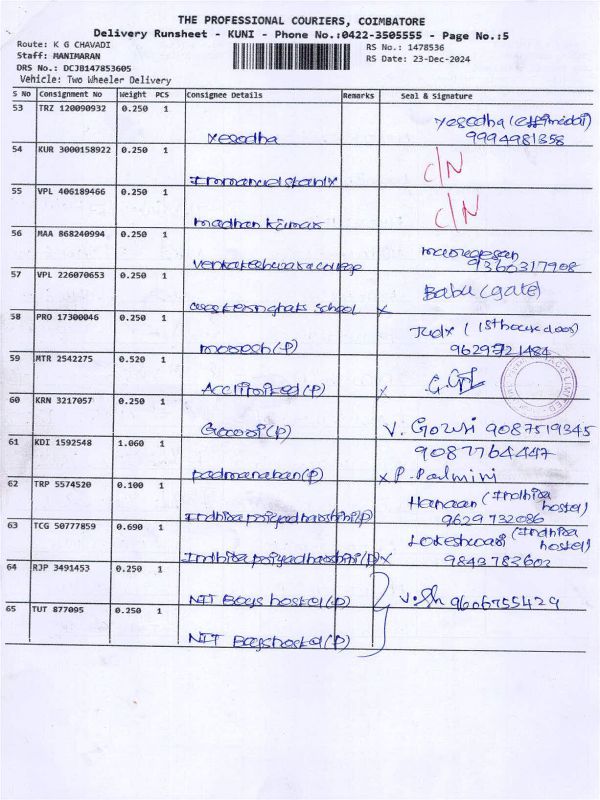 THE PROFESSIONAL COURIERS, COIMBATORE
Delivery Runsheet - KUNI - Phone No.:0422-3505555 - Page No.:5
Route: K G CHAVADI
RS No.: 1478536
Staff: MANIMARAN
RS Date: 23-Dec-2024
DRS No.: DCJB147853605
Vehicle: Two Wheeler Delivery
S No Consignment No Weight PCS Consignee Details Remarks Seal & Signature
53 TRZ 120090932 0.250 1
Yesodha Yesodha
9994981358
54 KUR 3000158922 0.250 1
C/N
55 VPL 406189466 0.250 1
C/N
madhan kumar
56 MAA 868240994 0.250 1
murugesan
9360317908
57 VPL 226070653 0.250 1
Babu (gate)
school x
58 PRO 17300046 0.250 1
9629721484
59 MTR 2542275 0.520 1
x
60 KRN 3217057 0.250 1
(P) V. Gowri 9087519345
61 KDI 1592548 1.060 1
9087764447
padmanaban(P) x P. Padmini
62 TRP 5574520 0.100 1
Hanaan (Indhira hostel)
Indhira priyadharshini(P) 9629732086
63 TCG 50777859 0.690 1
Lokeshwari (Indhira hostel)
Indhira priyadharshini(P) x 9843783602
64 RJP 3491453 0.250 1
NIT Boys hostel(P) 9606755429
65 TUT 877095 0.250 1
NIT Boys hostel(P)